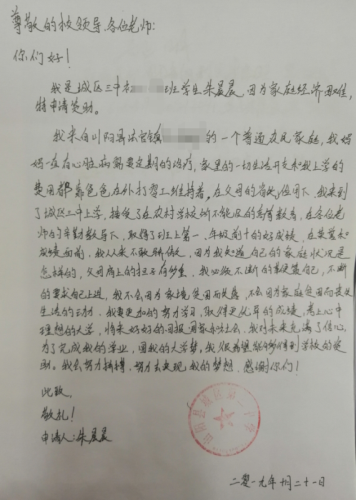 尊敬的校领导、各位老师:
你们好!
我是城区三中 班学生朱晨晨,因为家庭经济困难,
特申请资助。
我来自山阳县法官镇 的一个普通农民家庭,我妈
妈一直有心脏病需要定期的治疗,家里的一切生活开支和我上学的
费用都靠爸爸在外打零工维持着,在父母的 下,我来到
了城区三中上学,接受了在农村学校所不能及的高等教育,在各位老
师的辛勤教导下,取得了班上第一,年级前十的好成绩,在荣誉和
成绩面前,我从来不敢骄傲,因为我知道自己的家庭状况是
怎样的,父母肩上的担子有多重,我必须不断的 自己,不断
的要求自己上进,我不会因为家境贫困而 ,不会因为家庭贫困而失去
生活的 ,我更要加的努力学习,取得更优异的成绩,考上心中
理想的大学,将来好好的回报国家和社会,我对未来充满了信心,
为了完成我的学业,圆我的大学梦,我很希望能够得到学校的资
助。我会努力拼搏,努力去实现我的梦想,感谢你们!
此致
敬礼!
申请人:朱晨晨
二零一九年 月二十一日